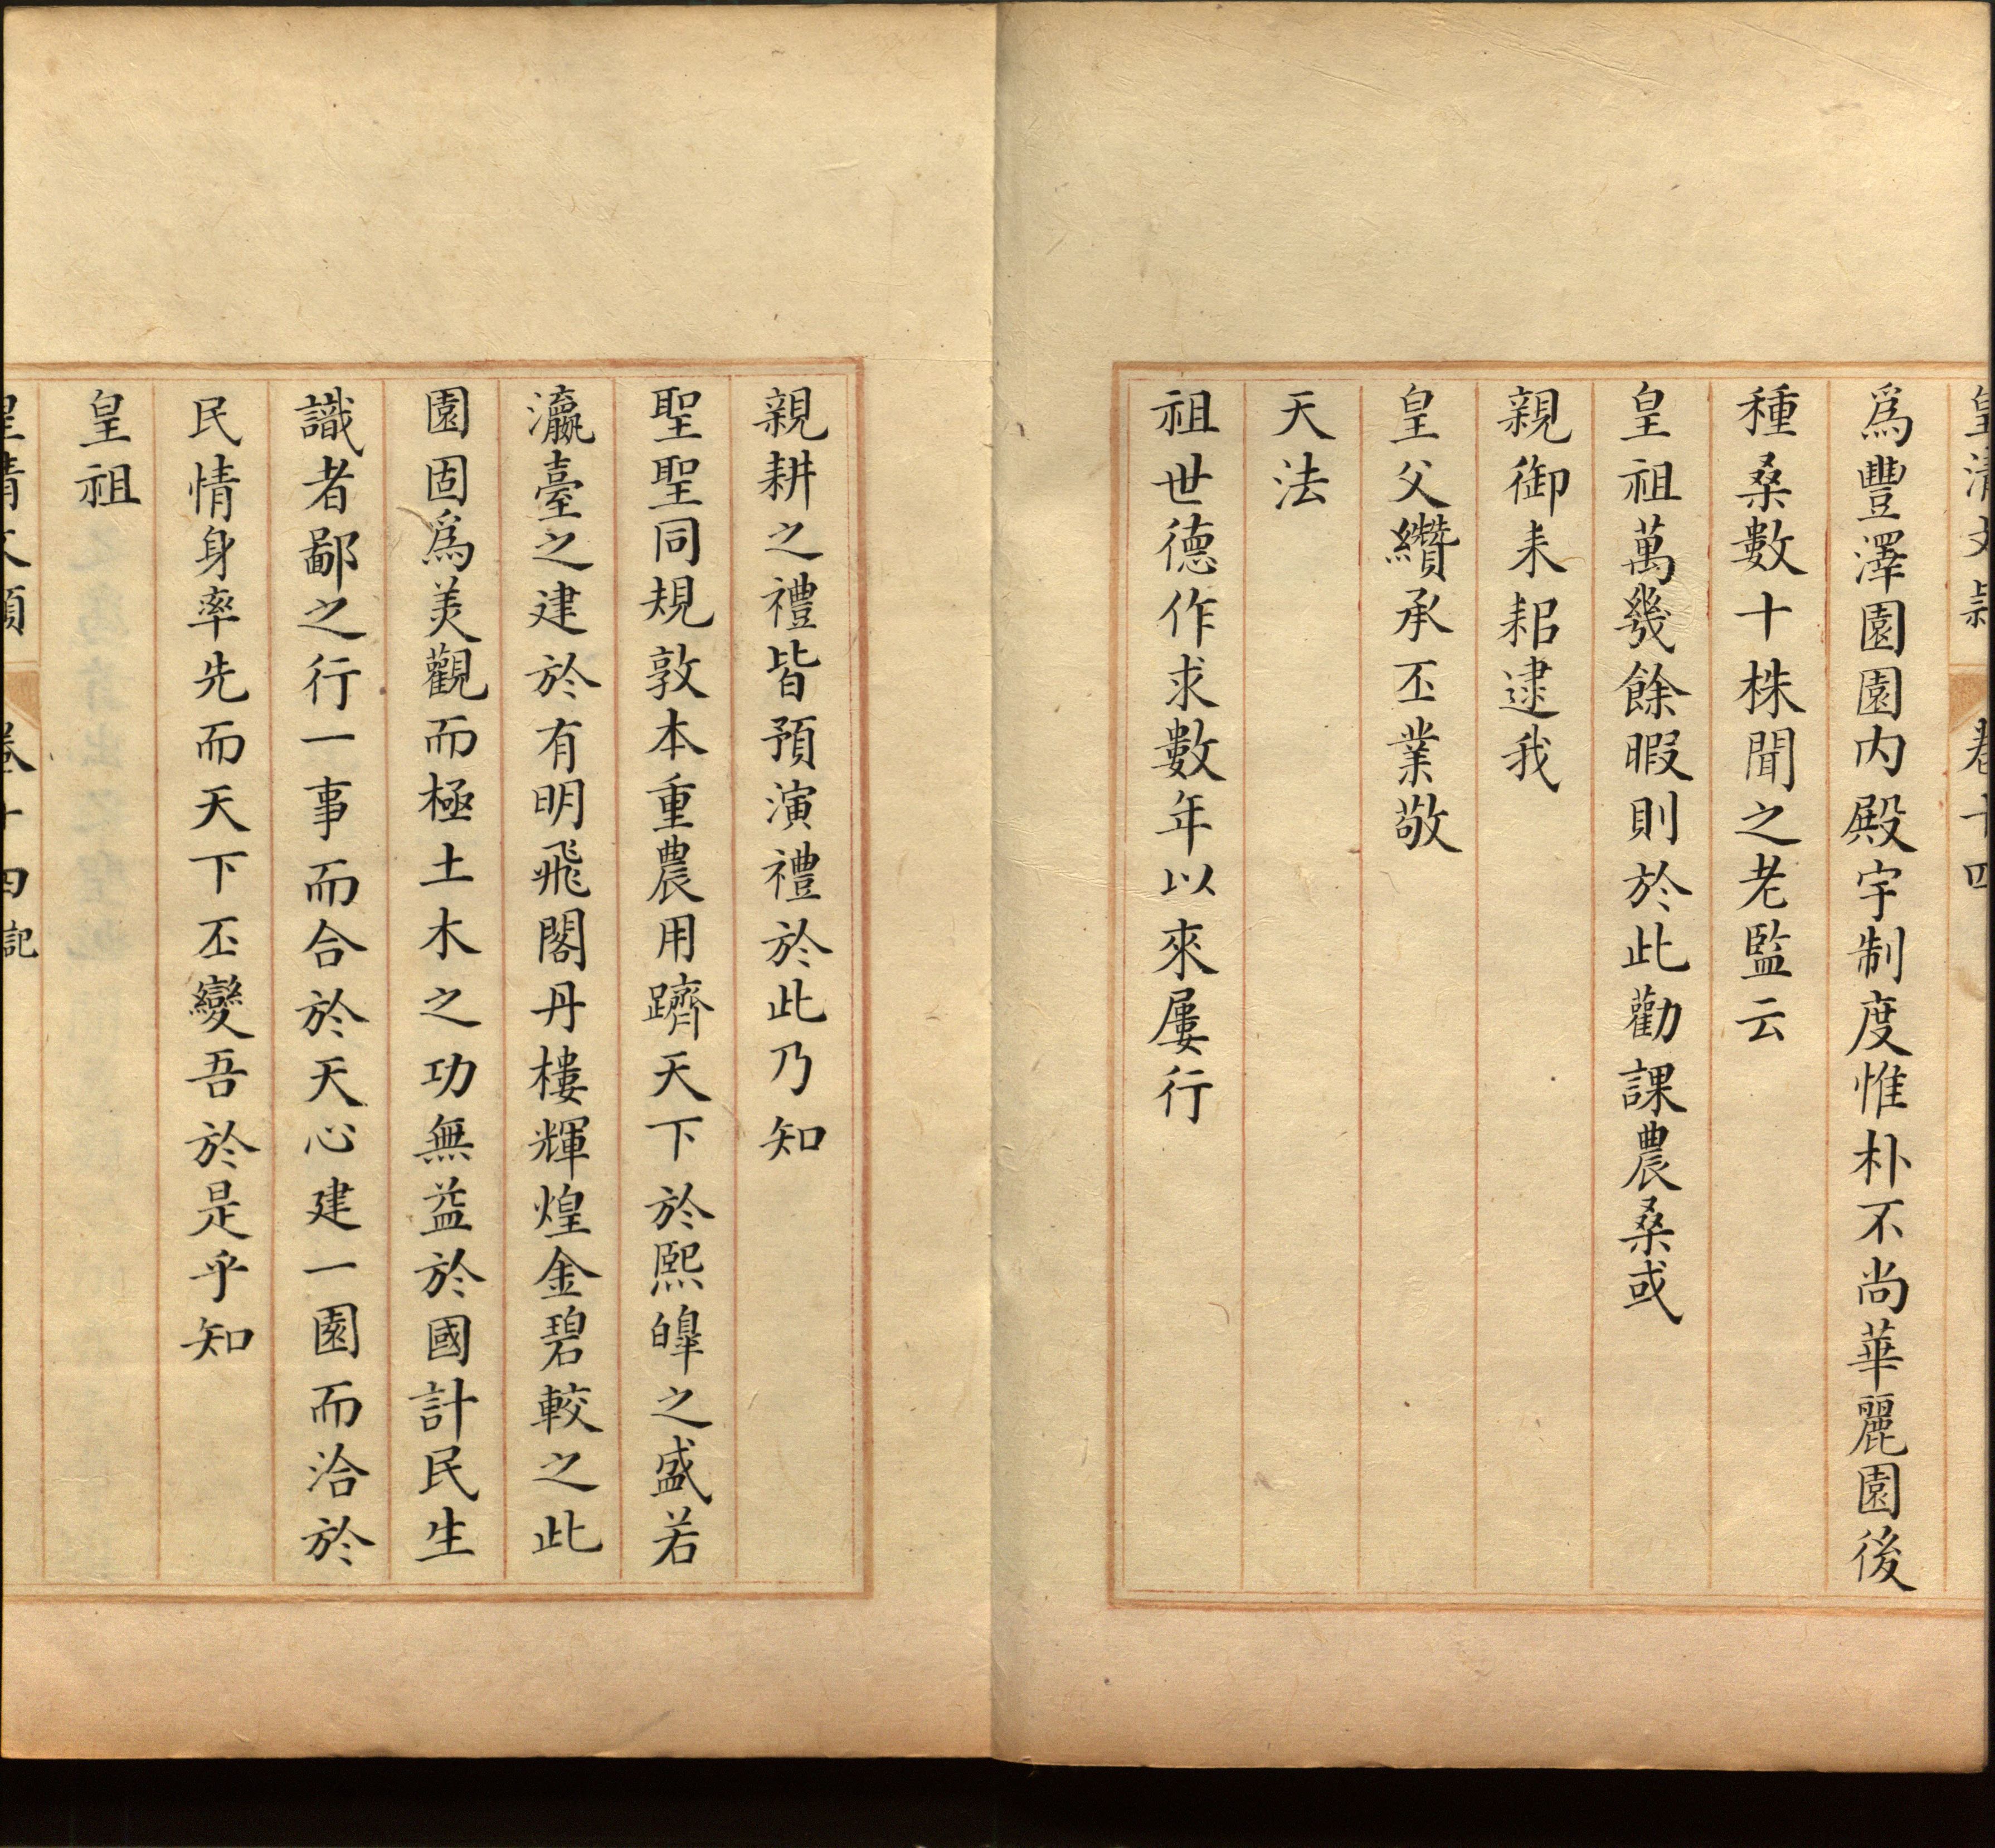 皇清文穎 卷十四
爲豐澤園園内殿宇制度惟朴不尚華麗園後
種桑數十株聞之老監云
皇祖萬幾餘暇則於此勸課農桑或
親御耒耜逮我
皇父纘承丕業敬
天法
祖世德作求數年以來屢行
親耕之禮皆預演禮於此乃知
聖聖同規敦本重農用躋天下於熙皥之盛若
瀛臺之建於有明飛閣丹樓輝煌金碧較之此
園固爲美觀而極土木之功無益於國計民生
識者鄙之行一事而合於天心建一園而洽於
民情身率先而天下丕變吾於是乎知
皇祖
皇清文穎 卷十四 記